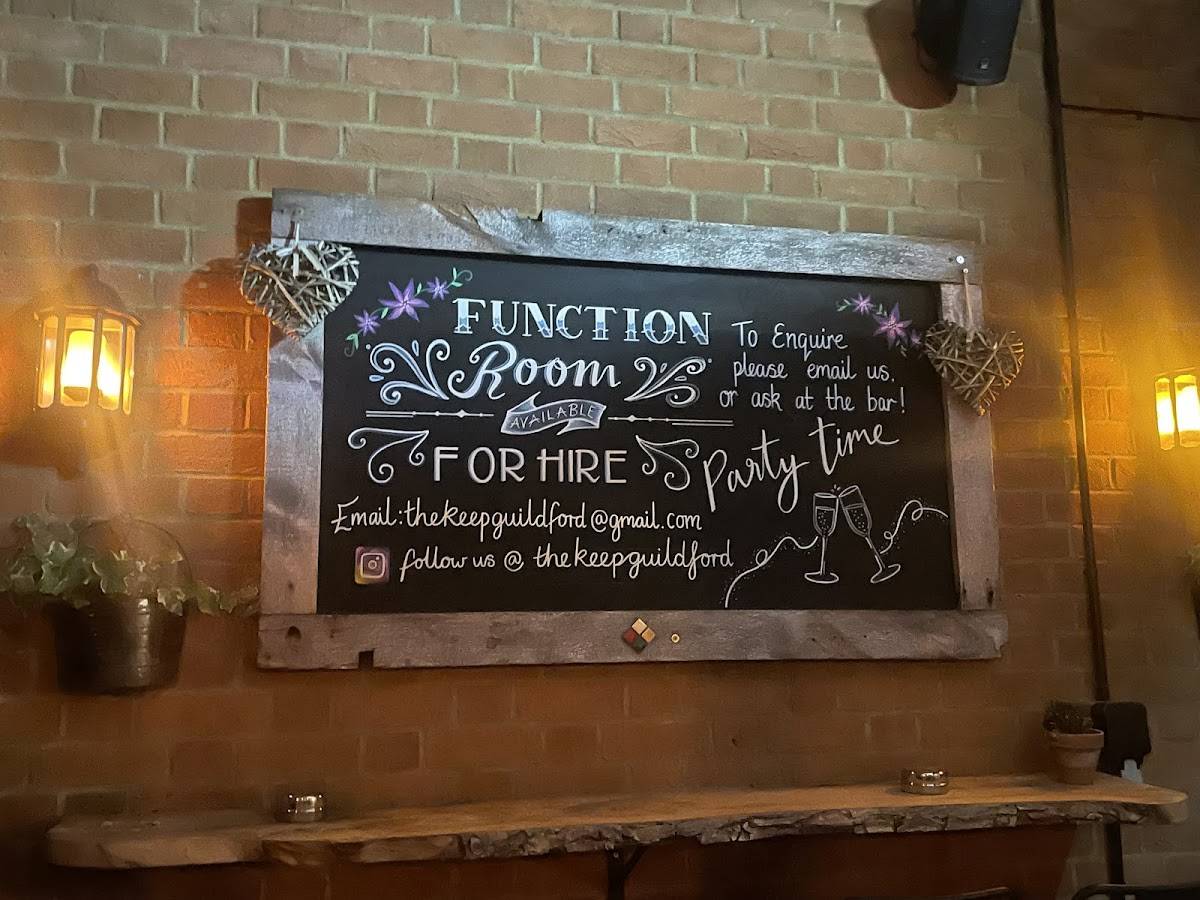 FUNCTION
Room
AVAILABLE
FOR HIRE
Email:thekeepguildford@gmail.com
follow us @ thekeepguildford
To Enquire
please email us.
or ask at the bar!
Party time